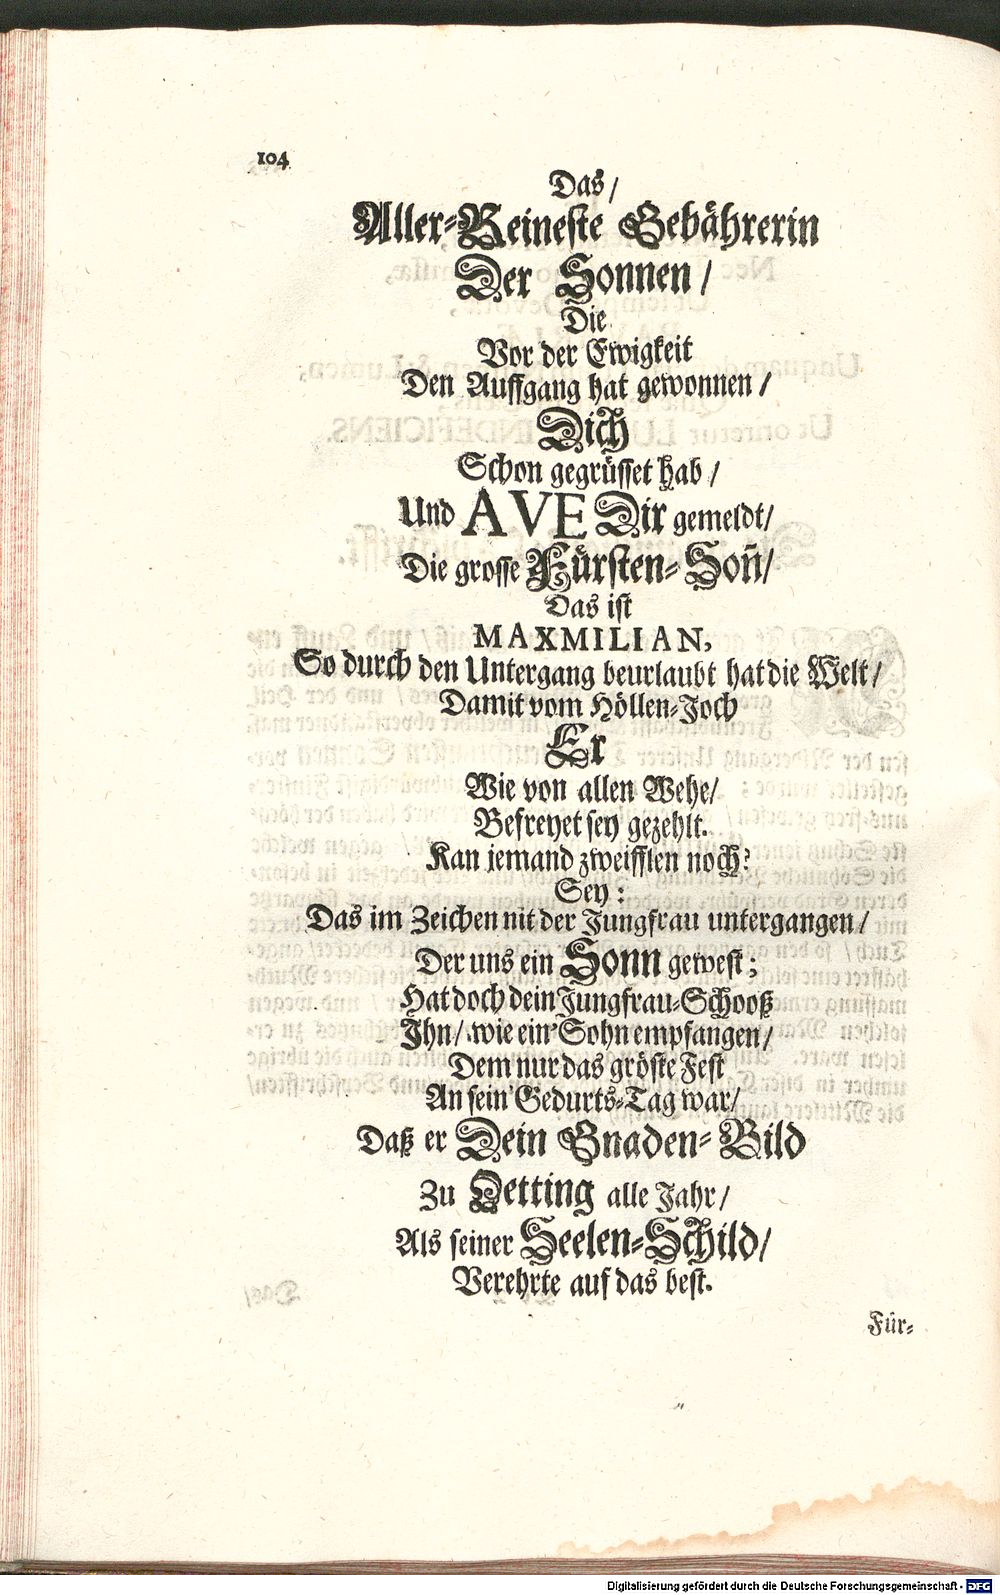 104
Das/
Aller-Reineste Gebährerin
Der Sonnen/
Die
Vor der Ewigkeit
Den Auffgang hat gewonnen/
Dich
Schon gegrüsset hab/
Und AVE Dir gemeldt/
Die grosse Fürsten-Soñ/
Das ist
MAXMILIAN,
So durch den Untergang beurlaubt hat die Welt/
Damit vom Höllen-Joch
Er
Wie von allen Wehe/
Befreyet sey gezehlt.
Kan jemand zweifflen noch?
Sey:
Das im Zeichen nit der Jungfrau untergangen/
Der uns ein Sonn gewest;
Hat doch dein Jungfrau-Schooß
Ihn/ wie ein Sohn empfangen/
Dem nur das gröste Fest
An sein Gedurts-Tag war/
Daß er Dein Gnaden-Bild
Zu Oetting alle Jahr/
Als seiner Seelen-Schild/
Verehrte auf das best.
Für-
Digitalisierung gefördert durch die Deutsche Forschungsgemeinschaft - DFG